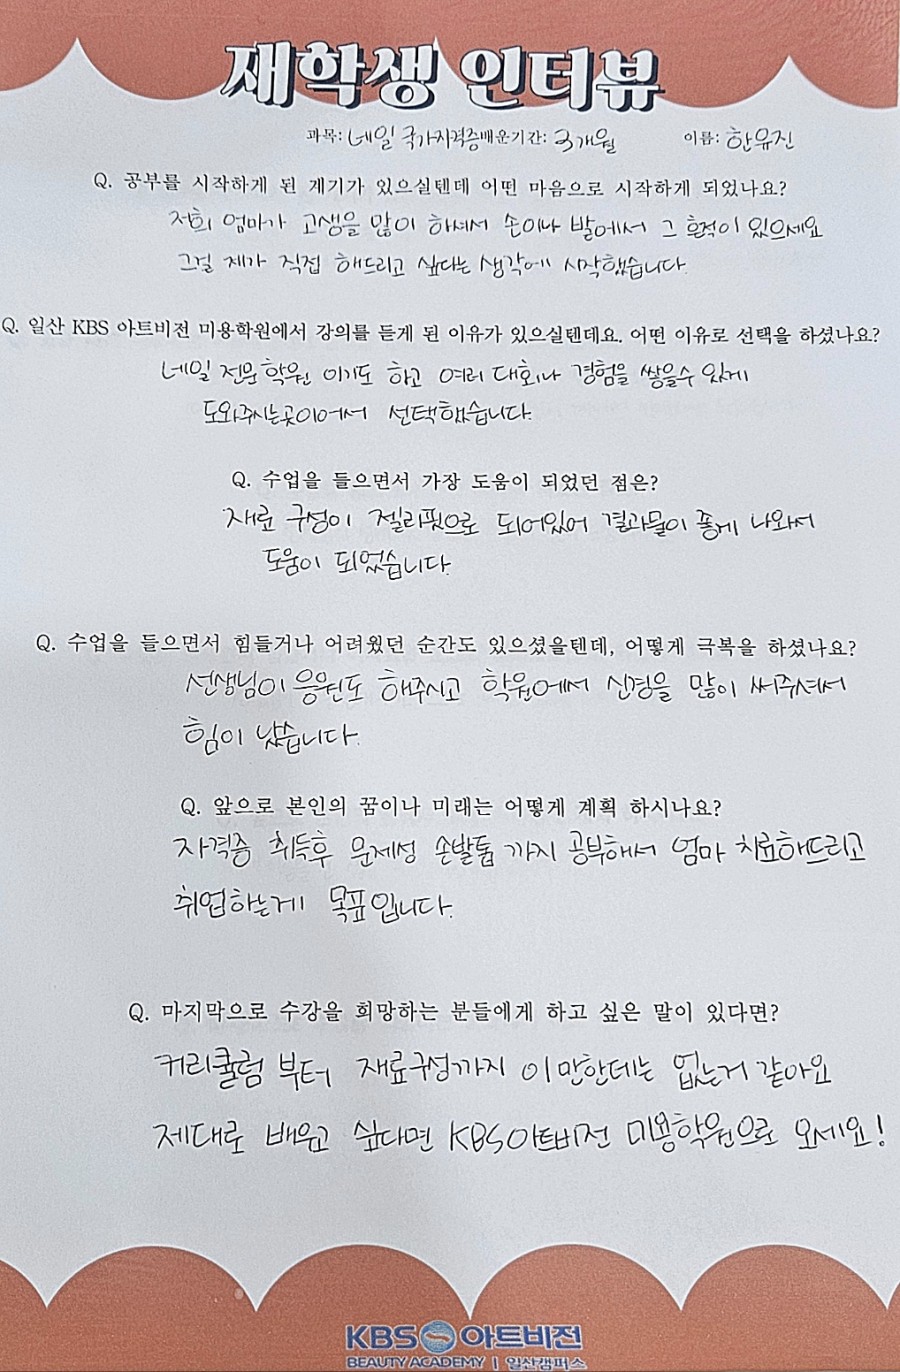 재학생 인터뷰
과목: 네일 국가자격증 배운기간: 3개월 이름: 한유진
Q. 공부를 시작하게 된 계기가 있으실텐데 어떤 마음으로 시작하게 되었나요?
저희 엄마가 고생을 많이 하셔서 손이나 발에서 그 흔적이 있으세요
그걸 제가 직접 해드리고 싶다는 생각에 시작했습니다.
Q. 일산 KBS 아트비전 미용학원에서 강의를 듣게 된 이유가 있으실텐데요. 어떤 이유로 선택을 하셨나요?
네일 전문학원 이기도 하고 여러 대회나 경험을 쌓을수 있게
도와주시는곳이어서 선택했습니다.
Q. 수업을 들으면서 가장 도움이 되었던 점은?
재료 구성이 젤라핏으로 되어있어 결과물이 좋게 나와서
도움이 되었습니다.
Q. 수업을 들으면서 힘들거나 어려웠던 순간도 있으셨을텐데, 어떻게 극복을 하셨나요?
선생님이 응원도 해주시고 학원에서 신경을 많이 써주셔서
힘이 났습니다.
Q. 앞으로 본인의 꿈이나 미래는 어떻게 계획 하시나요?
자격증 취득후 문제성 손발톱 까지 공부해서 엄마 치료해드리고
취업하는게 목표입니다.
Q. 마지막으로 수강을 희망하는 분들에게 하고 싶은 말이 있다면?
커리큘럼 부터 재료구성까지 이만한데는 없는거 같아요
제대로 배우고 싶다면 KBS아트비전 미용학원으로 오세요!
KBS 아트비전
BEAUTY ACADEMY | 일산캠퍼스